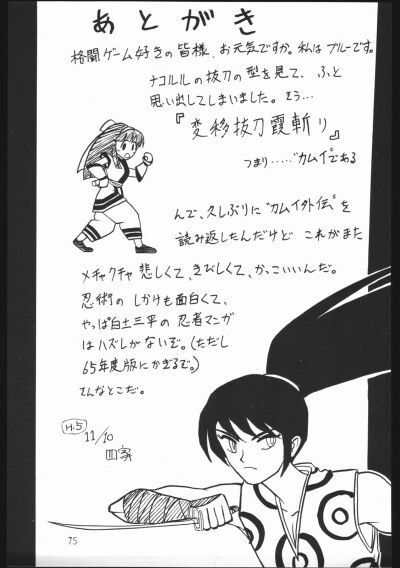 あとがき
格闘ゲーム好きの皆様、お元気ですか。私はブルーです。
ナコルルの抜刀の型を見て、ふと
思い出してしまいました。そう…
『変移抜刀霞斬り』
つまり……"カムイ"である
んで、久しぶりに"カムイ外伝"を
読み返したんだけど これがまた
メチャクチャ悲しくて、きびしくて、かっこいいんだ。
忍術の しかけも面白くて、
やっぱ白土三平の忍者マンガ
はハズレがないぞ。(ただし
65年度版にかぎるで。)
てんなとこだ。
H.5
11/10
75